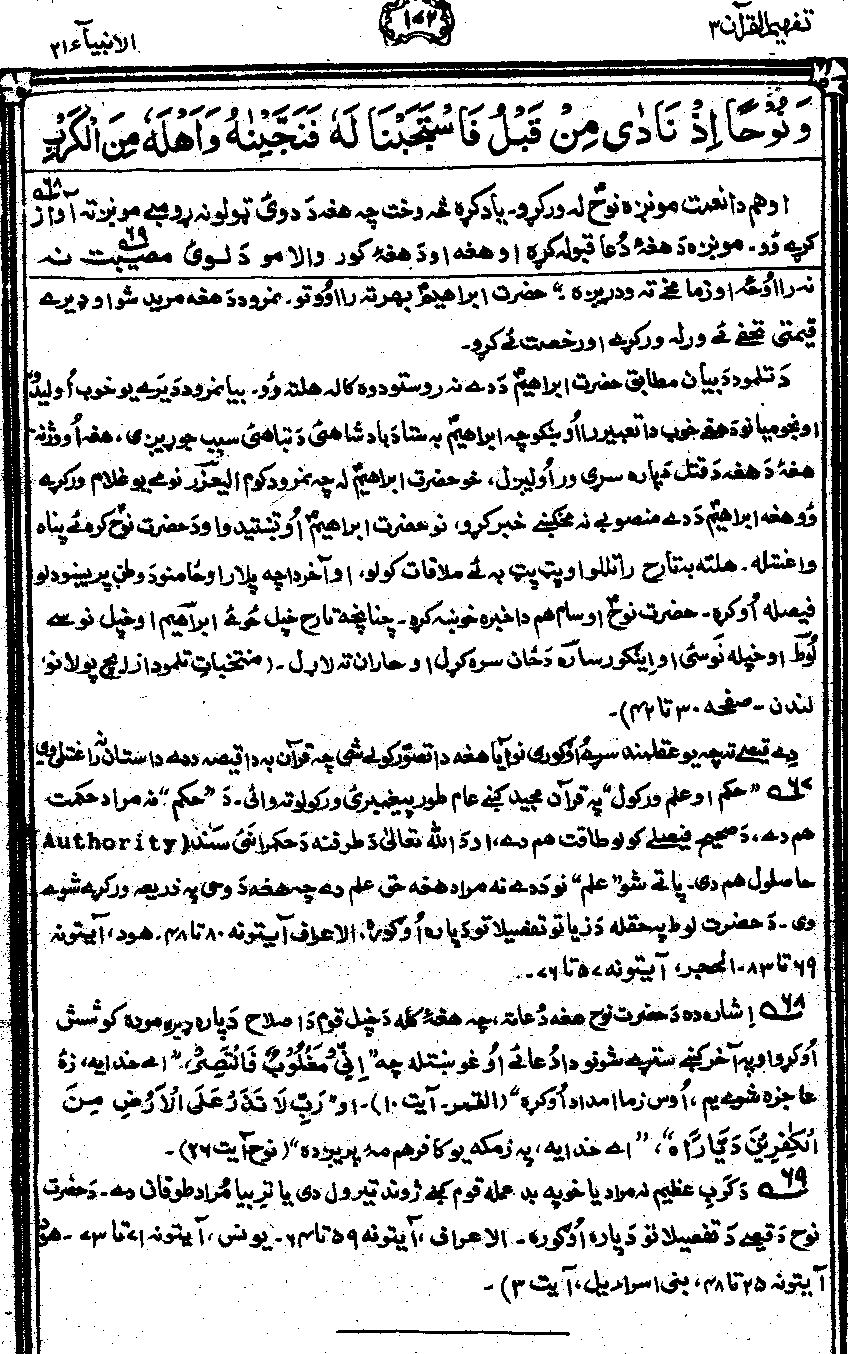 تفهیم القرآن ۳
۱۵۲
الانبیآء ۲۱
وَنُوْحًا اِذْ نَادٰی مِنْ قَبْلُ فَاسْتَجَبْنَا لَهٗ فَنَجَّیْنٰهُ وَاَهْلَهٗ مِنَ الْکَرْبِ
او هم دا نعمت مونږه نوحؑ له ورکړو۔ یاد کړه هغه وخت چه هغه دَ دوئ ټولو نه ړومبے مونږ ته آواز ۶۸
کړے وُو۔ مونږه دَ هغهٔ دُعا قبوله کړه او هغه او دَ هغهٔ کور والا مو دَ لوئ مصیبت ۶۹ نه
نه رااوُځه او زما مخے ته ودریږه۔“ حضرت ابراهیمؑ بهر ته رااووتو۔ نمرود دَ هغه مرید شو او ډیرے
قیمتی تحفے ئے ورله ورکړے او رخصت ئے کړو۔
دَ تلمود دَ بیان مطابق حضرت ابراهیمؑ دَ دے نه روستو دوه کاله هلته وُو۔ بیا نمرود دَ یرے یو خوب اُولیدو
او نجومیانو دَ هغه خوب دا تعبیر رااوُښکو چه ابراهیمؑ به ستا دَ بادشاهئ دَ تباهئ سبب جوړیږی، هغه اُووژنه
هغهٔ دَ هغه دَ قتل دَپاره سړی ور اُولیږل، خو حضرت ابراهیمؑ له چه نمرود کوم الیعزر نومے یو غلام ورکړے
وُو هغه ابراهیمؑ دَ دے منصوبے نه مخکښے خبر کړو، نو حضرت ابراهیمؑ اُوتښتید و او دَ حضرت نوحؑ کره ئے پناه
واغستله۔ هلته به تارح راتللو او پټ پټ به ئے ملاقات کولو، او آخر دا چه پلار او ځامنو دَ وطن پریښودلو
فیصله اُوکړه۔ حضرت نوحؑ او سام هم دا خبره خوښه کړه۔ چنانچه تارح خپل ځوئے ابراهیم او خپل نوسے
لُوط او خپله نوسئ او اینګور ساره دَ ځان سره کړل او حاران ته لاړل۔ (منتخباتِ تلمود از ایچ پولانو،
لندن۔ صفحه ۳۰ تا ۴۲)۔
دے قیصے ته چه یو عقلمند سړے اوُګوری نو آیا هغه دا تصوّر کولے شی چه قرآن به دا قیصه دے داستان نه راغستلے وی
۶۷ ”حکم او علم ورکول“ په قرآن مجید کښے عام طور پیغمبرئ ورکولو ته وائی۔ دَ ”حکم“ نه مراد حکمت
هم دے، دَ صحیح فیصلے کولو طاقت هم دے، او دَ الله تعالیٰ دَ طرفنه دَ حکمرانئ سَنَد (Authority)
حاصلول هم دی۔ پاتے شو ”علم“ نو دَ دے نه مراد هغه حق علم دے چه هغه دَ وحی په ذریعه ورکړے شوے
وی۔ دَ حضرت لوط په حقله دَ زیاتو تفصیلاتو دَپاره اُوګوره: الاعراف آیتونه ۸۰ تا ۸۴۔ هود، آیتونه
۶۹ تا ۸۳۔ الحجر، آیتونه ۵۷ تا ۷۶۔
۶۸ اِشاره ده دَ حضرت نوح هغه دُعا ته، چه هغهٔ کله دَ خپل قوم دَ اصلاح دَپاره ډیره موده کوشش
اُوکړو او په آخر کښے ستړے شو نو دا دُعا ئے اُوغوښتله چه ”اِنِّیْ مَغْلُوْبٌ فَانْتَصِرْ“، ”اے خدایه، زهٔ
عاجزه شوے یم، اُوس زما امداد اُوکړه“ (القمر۔ آیت ۱۰)۔ او ”رَبِّ لَا تَذَرْ عَلَی الْاَرْضِ مِنَ
الْکٰفِرِیْنَ دَیَّارًا“، ”اے خدایه، په زمکه یو کافر هم مهٔ پریږده“ (نوح آیت ۲۶)۔
۶۹ دَ کَربِ عظیم نه مراد یا خو په بد عمله قوم کښے ژوند تیرول دی یا تر بیا مُراد طوفان دے۔ دَ حضرت
نوح دَ قیصے دَ تفصیلاتو دَپاره اُوګوره۔ الاعراف، آیتونه ۵۹ تا ۶۴۔ یونس، آیتونه ۷۱ تا ۷۳۔ هود
آیتونه ۲۵ تا ۴۸، بنی اسرایل، آیت ۳)۔